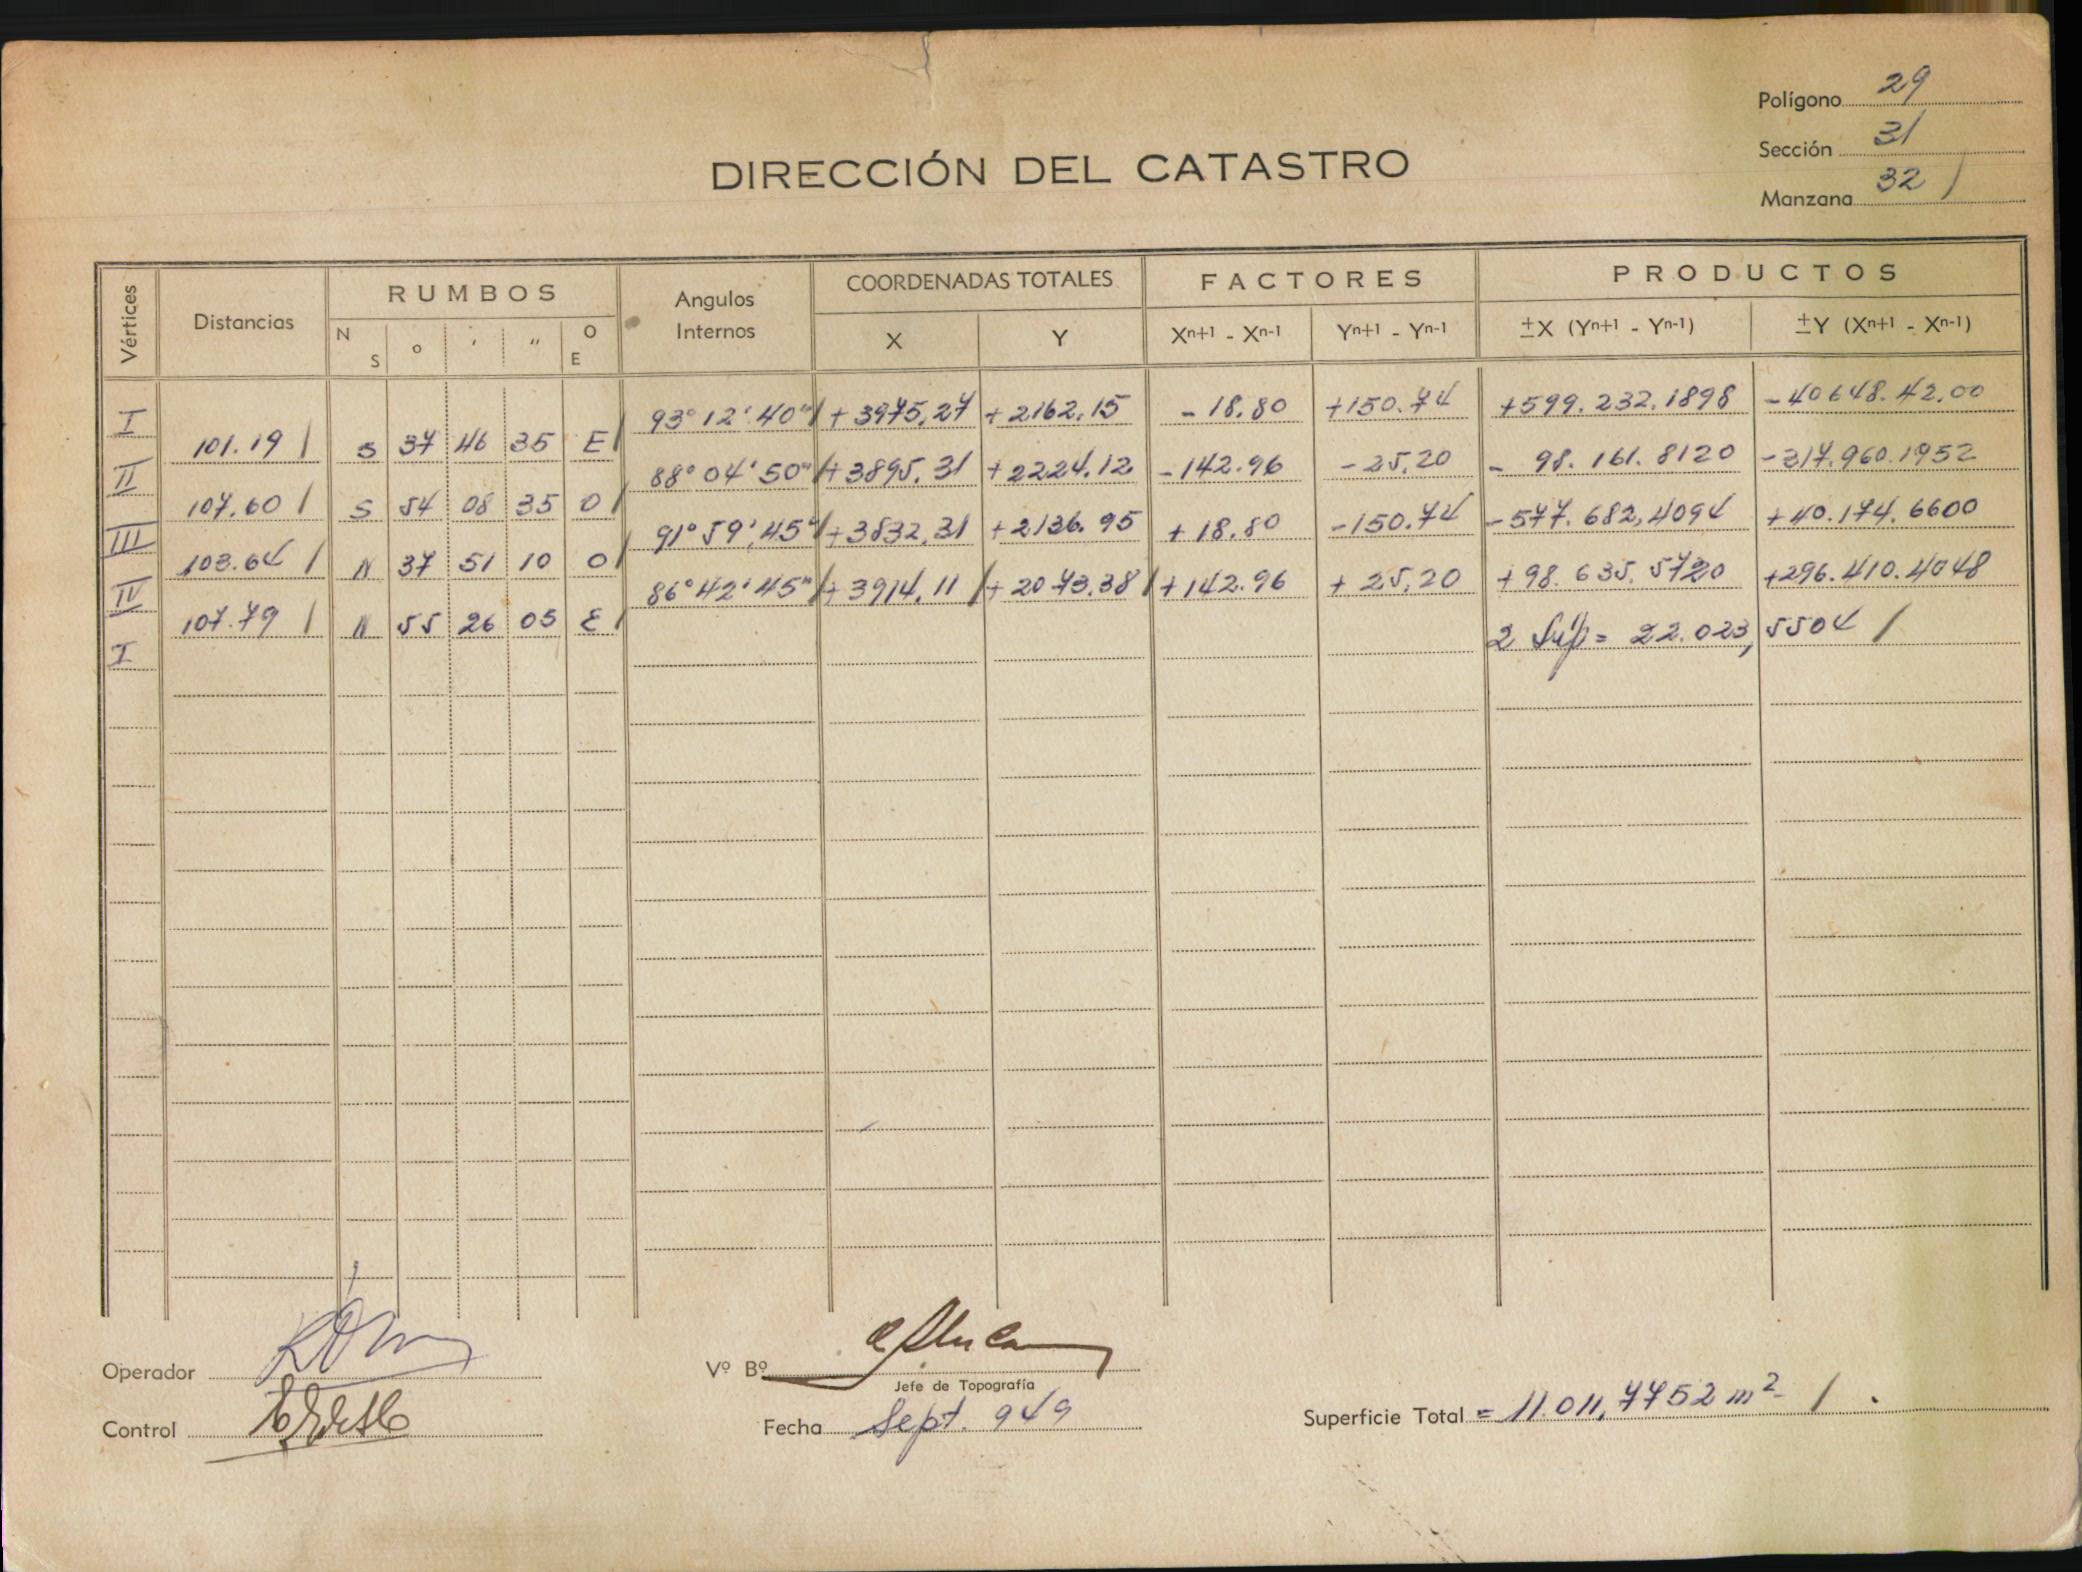 Polígono 29
Sección 31
Manzana 32 /
DIRECCIÓN DEL CATASTRO
Vértices Distancias RUMBOS Angulos Internos COORDENADAS TOTALES FACTORES PRODUCTOS
N S ° ' " O E X Y Xn+1 - Xn-1 Yn+1 - Yn-1 ±X (Yn+1 - Yn-1) ±Y (Xn+1 - Xn-1)
I 93° 12' 40" / + 3975,27 + 2162,15 - 18.80 +150.74 +599.232,1898 -40648.42,00
101.19 / S 37 46 35 E /
II 88° 04' 50" / +3895,31 +2224,12 -142.96 -25,20 - 98.161.8120 -317.960.1952
107.60 / S 54 08 35 O /
III 91° 59' 45" / +3832,31 +2136.95 +18.80 -150.74 -577.682,4094 +40.174.6600
103.64 / N 37 51 10 O /
IV 86° 42' 45" / + 3914,11 / + 2073,38 / +142.96 + 25,20 +98.635.5720 +296.410.4048
107.79 / N 55 26 05 E /
2 Sup = 22.023,5504 /
I
Operador
Vº Bº
Jefe de Topografía
Control
Fecha Sept. 949
Superficie Total = 11.011,7752 m² /